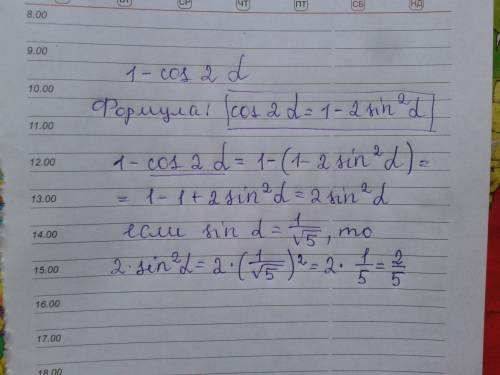 вт ср чт пт сб нд
8.00
9.00
1 - cos 2 d
10.00
Формула: cos 2 d = 1 - 2 sin² d
11.00
12.00 1 - cos 2 d = 1 - (1 - 2 sin² d) =
13.00 = 1 - 1 + 2 sin² d = 2 sin² d
14.00 если sin d = 1/√5, то
15.00 2 · sin² d = 2 · (1/√5)² = 2 · 1/5 = 2/5
16.00
17.00
18.00